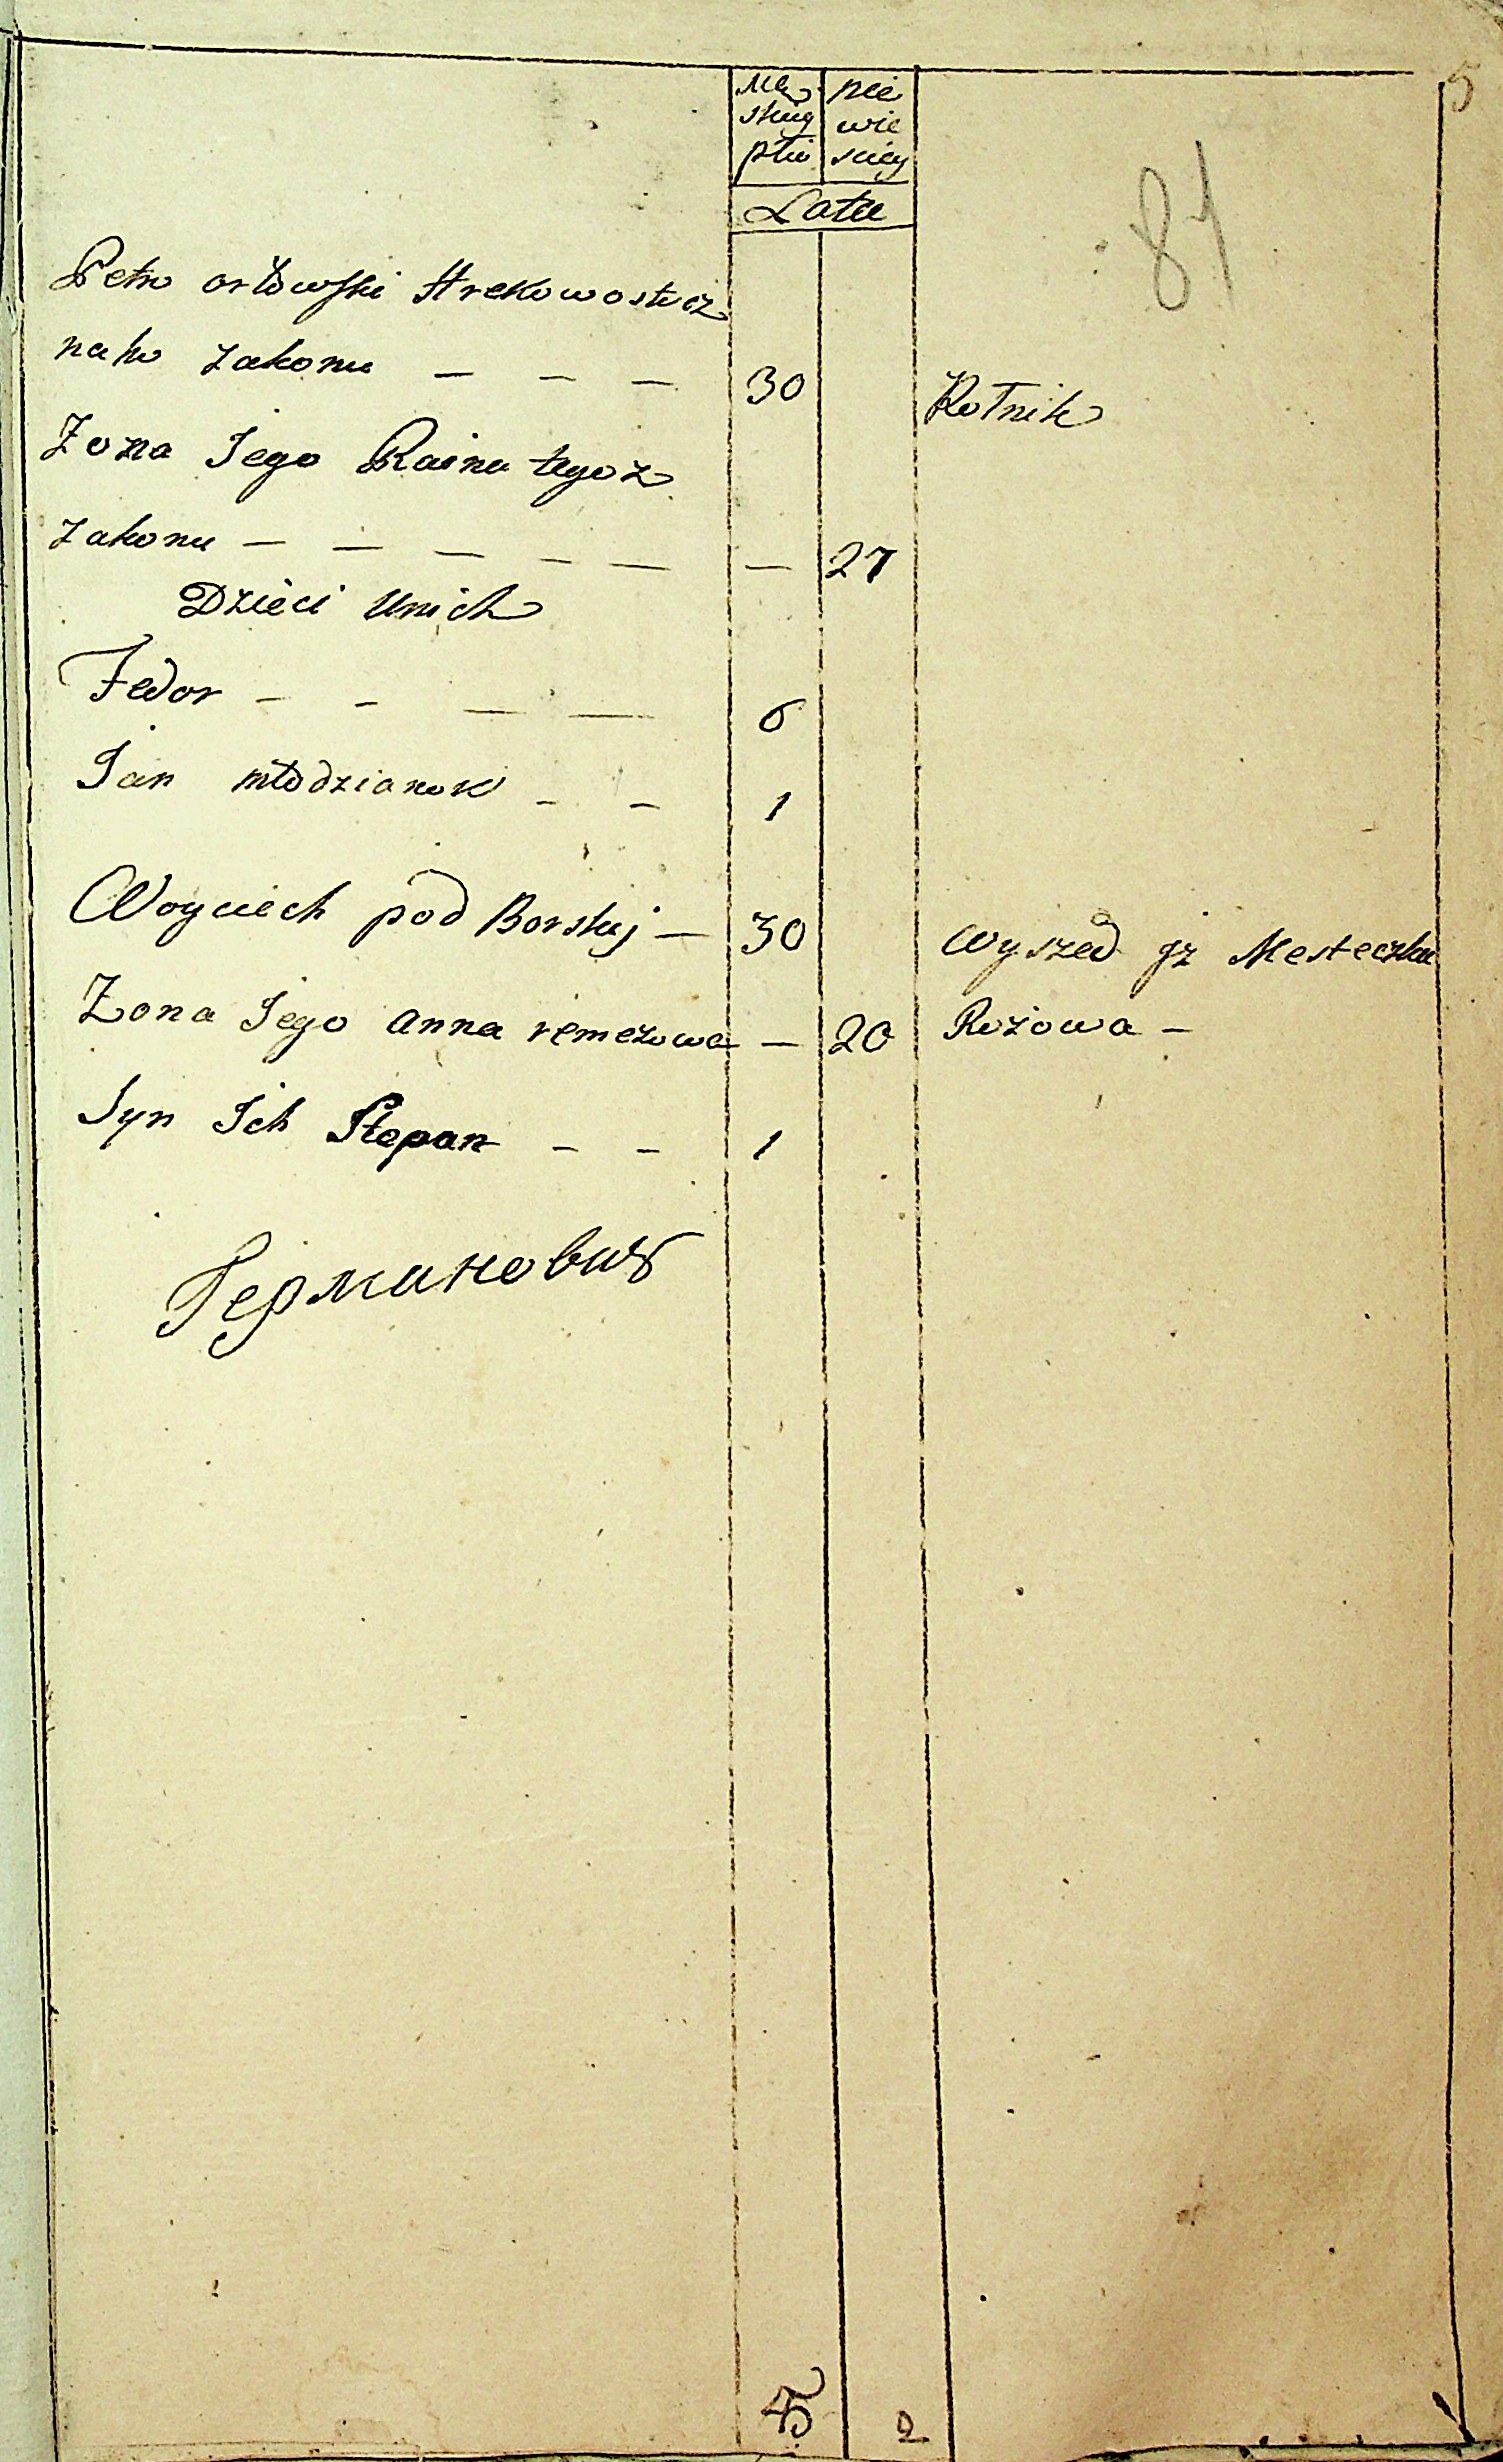 5
81
Mę nie
skiey wie
płci sciey
Lata
Petro orłowski Hrekowostocz
naho zakonu — — — 30 Rolnik
Zona Jego Raina tegoz
zakonu — — — — — — 27
Dzieci Unich
Fedor — — — — 6
Jan młodzianek — — 1
Woyciech pod Borskij — 30 Wyszed jz Mesteczka
Zona Jego anna remezowa — 20 Rożowa —
Syn Ich Stepan — — 1
Германовичъ
5 2